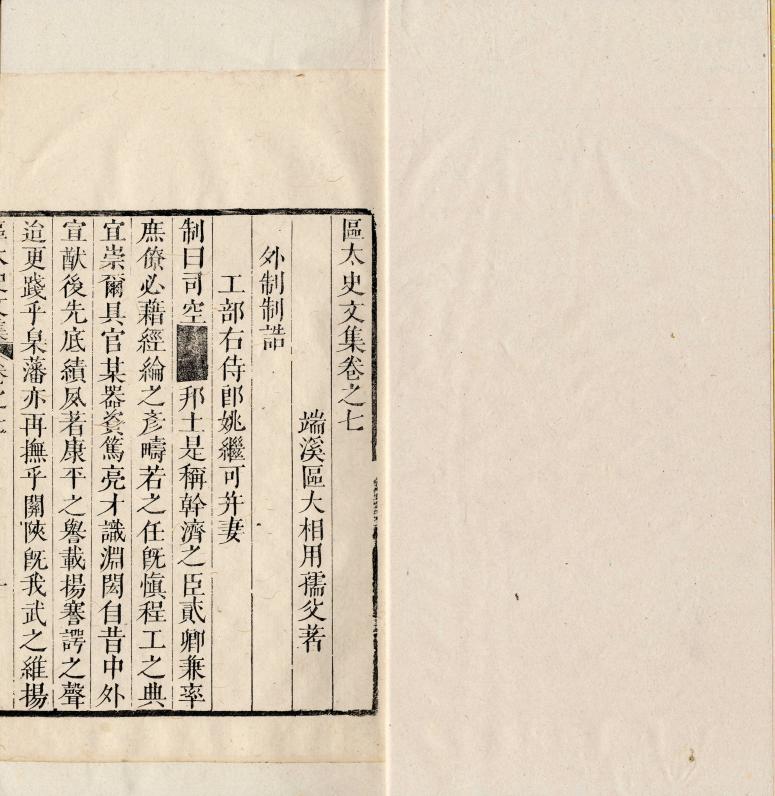 區太史文集卷之七
端溪區大相用孺父著
外制制誥
工部右侍郎姚繼可并妻
制曰司空邦土是稱幹濟之臣貳卿兼率
庶僚必藉經綸之彥疇若之任旣愼程工之典
宜崇爾具官某器資篤亮才識淵閎自昔中外
宣猷後先底績夙著康平之譽載揚謇諤之聲
迨更踐乎臬藩亦再撫乎關陝旣我武之維揚
區太史文集卷之七